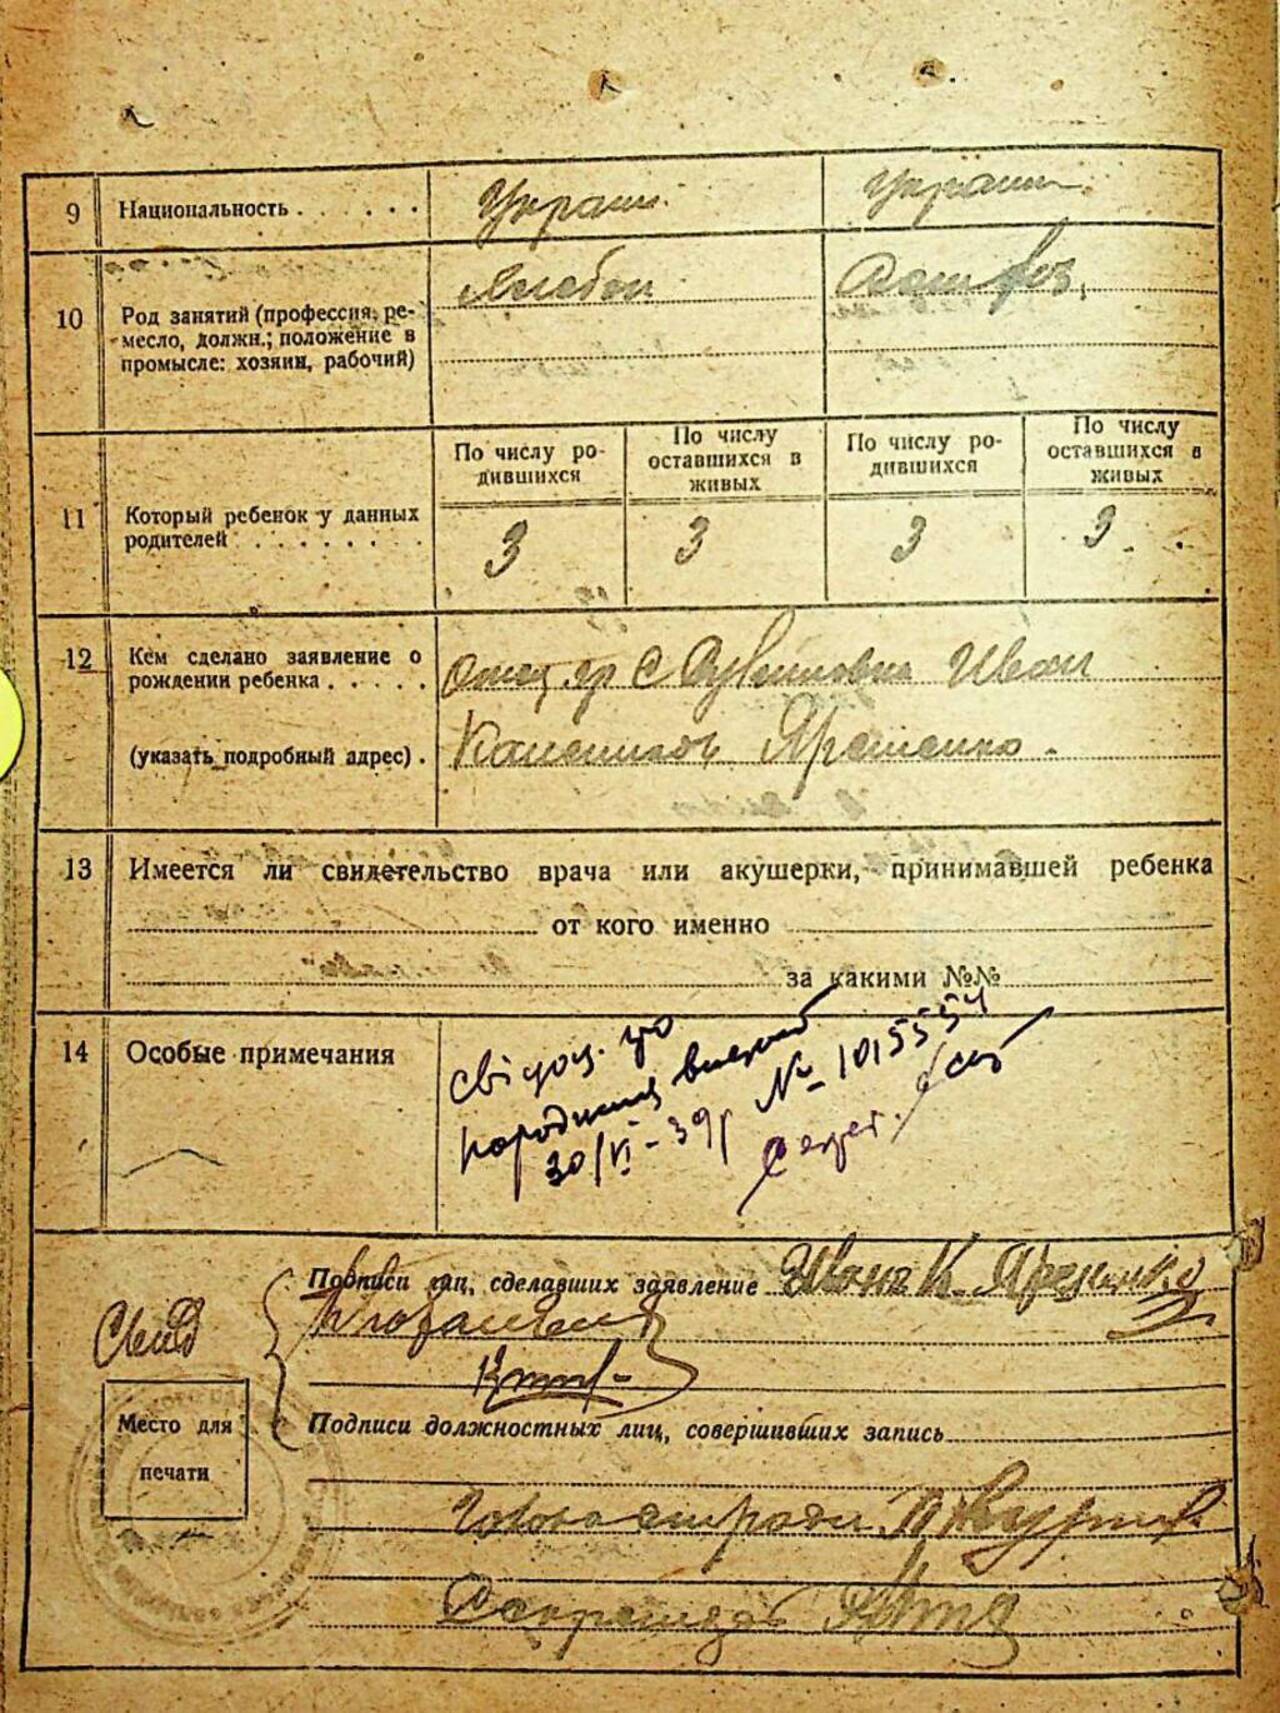 9 Национальность . . . . . . Украин. Украин.
10 Род занятий (профессия, ре-
месло, должн.; положение в
промысле: хозяин, рабочий)
По числу ро-
дившихся
По числу
оставшихся в
живых
По числу ро-
дившихся
По числу
оставшихся в
живых
11 Который ребенок у данных
родителей . . . . . . . .
3 3 3 3
12 Кем сделано заявление о
рождении ребенка . . . . .
Отец гр С Иван
(указать подробный адрес) .
Яременко
13 Имеется ли свидетельство врача или акушерки, принимавшей ребенка
от кого именно
за какими №№
14 Особые примечания
свідоц. про
народженя
30/VI - 39р № 1015554
Секрет.
Подписи лиц, сделавших заявление К. Яременко
Свид
Место для
печати
Подписи должностных лиц, совершивших запись
Голова сильради
Секретарь